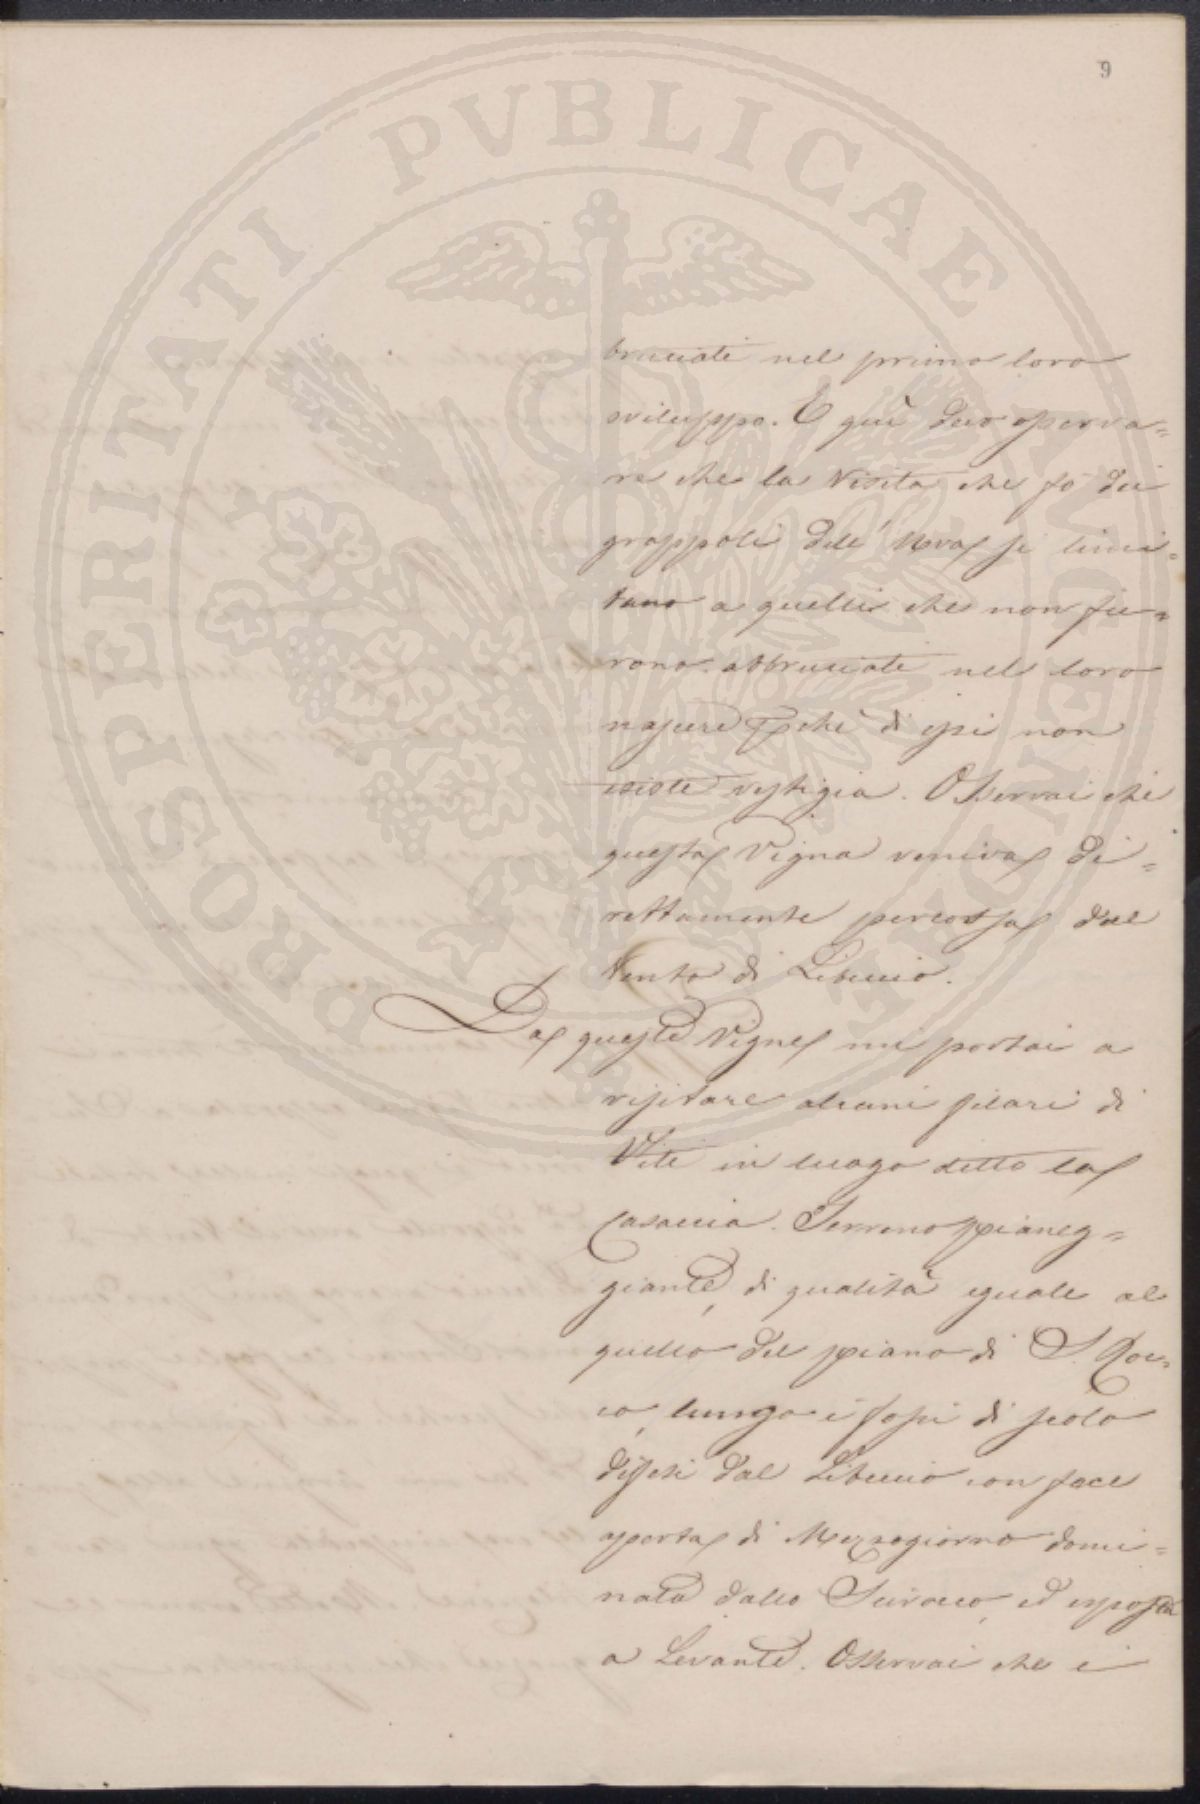 9
bruciati nel primo loro
sviluppo. E quì devo osserva=
re che la Visita che fo dei
grappoli dell'Uva si limi=
tano a quelli che non fu=
rono abbruciati nel loro
nascere perchè di essi non
esiste vestigia. Osservai che
questa Vigna veniva di=
rettamente percossa dal
Vento di Libeccio.
Da queste Vigne mi portai a
visitare alcuni filari di
Viti in luogo detto la
Casaccia. Terreno pianeg=
giante, di qualità eguale al
quello del piano di S. Roc=
co, lungo i fossi di scolo
difesi dal Libeccio con face
aperta di Mezzogiorno domi=
nata dallo Scirocco, ed esposta
a Levante. Osservai che i
PROSPERITATI PVBLICAE AVGENDAE